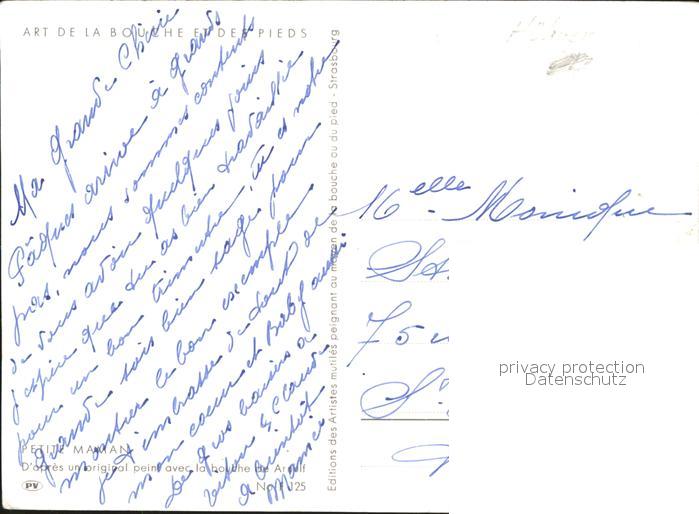 ART DE LA BOUCHE ET DES PIEDS
Ma Grande Chérie
Pâques arrive à grands
pas, nous sommes contents
de vous avoir quelques jours
j'espère que tu as bien travaillé
pour un bon trimestre, tu es notre
grande sois bien sage pour
montrer le bon exemple
je t'embrasse de tout
mon coeur et Baby aussi
De gros baisers à
Claude
à bientôt
Mamie
PETITE MAMAN
D'après un original peint avec la bouche de Arnulf
PV
No F 125
Editions des Artistes mutilés peignant au moyen de la bouche ou du pied - Strasbourg
Melle Monique
75
privacy protection
Datenschutz